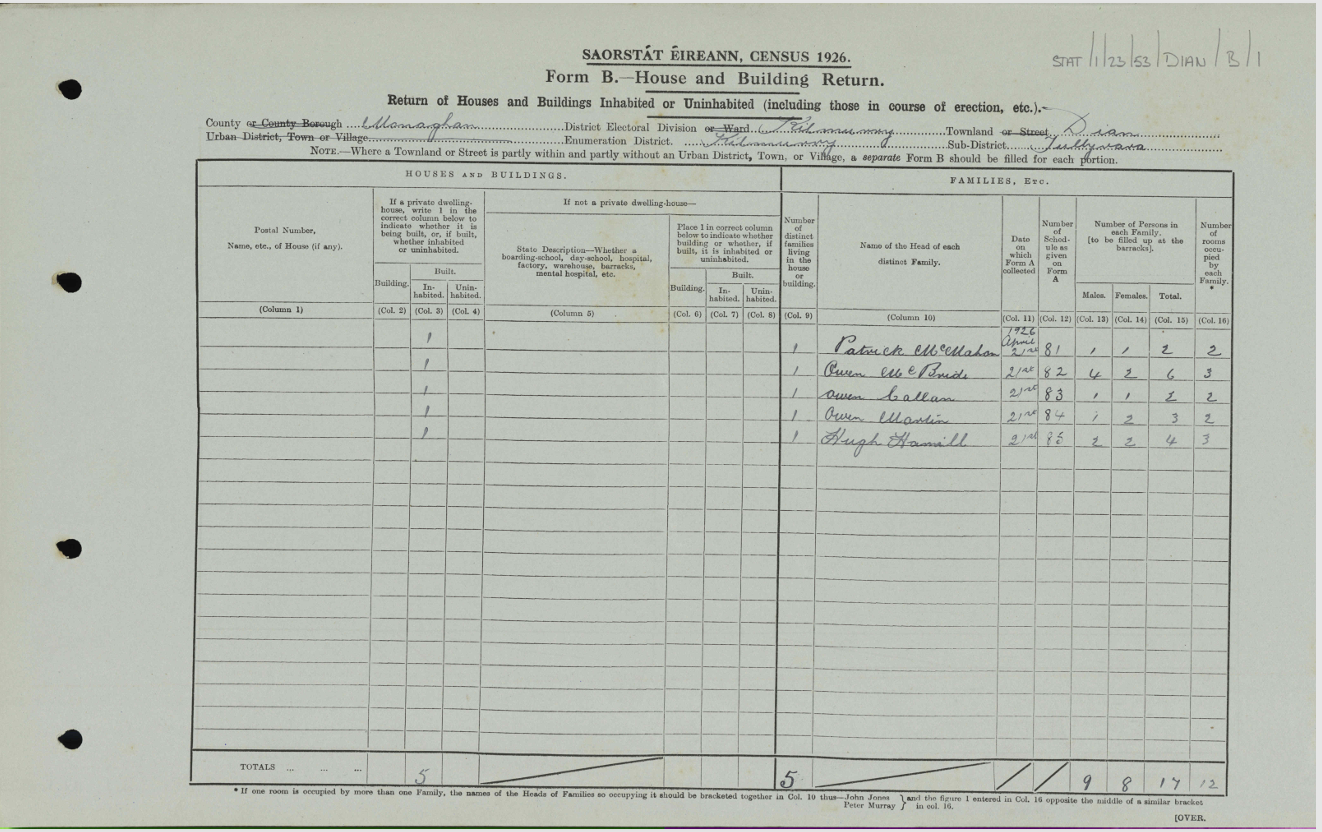 STAT/1/23/53/DIAN/B/1
SAORSTÁT ÉIREANN, CENSUS 1926.
Form B.—House and Building Return.
Return of Houses and Buildings Inhabited or Uninhabited (including those in course of erection, etc.).
County or County Borough Monaghan District Electoral Division or Ward Kilmurry Townland or Street Dian
Urban District, Town or Village Enumeration District. Kilmurry Sub-District Tullyvara
NOTE.—Where a Townland or Street is partly within and partly without an Urban District, Town, or Village, a separate Form B should be filled for each portion.
HOUSES AND BUILDINGS. FAMILIES, ETC.
Postal Number, Name, etc., of House (if any).
If a private dwelling-house, write 1 in the correct column below to indicate whether it is being built, or, if built, whether inhabited or uninhabited.
Building. Built. Inhabited. Uninhabited.
If not a private dwelling-house—
State Description—Whether a boarding-school, day-school, hospital, factory, warehouse, barracks, mental hospital, etc.
Place 1 in correct column below to indicate whether building or whether, if built, it is inhabited or uninhabited.
Building. Built. Inhabited. Uninhabited.
Number of distinct families living in the house or building.
Name of the Head of each distinct Family.
Date on which Form A collected
Number of Schedule as given on Form A
Number of Persons in each Family. [to be filled up at the barracks].
Males. Females. Total.
Number of rooms occupied by each Family. *
(Column 1) (Col. 2) (Col. 3) (Col. 4) (Column 5) (Col. 6) (Col. 7) (Col. 8) (Col. 9) (Column 10) (Col. 11) (Col. 12) (Col. 13) (Col. 14) (Col. 15) (Col. 16)
1926
April
1 1 Patrick McMahon 21st 81 1 1 2 2
1 1 Owen McBride 21st 82 4 2 6 3
1 1 Owen Callan 21st 83 1 1 2 2
1 1 Owen Martin 21st 84 1 2 3 2
1 1 Hugh Hamill 21st 85 2 2 4 3
TOTALS ... ... ... 5 5 9 8 17 12
* If one room is occupied by more than one Family, the names of the Heads of Families so occupying it should be bracketed together in Col. 10 thus—John Jones Peter Murray } and the figure 1 entered in Col. 16 opposite the middle of a similar bracket in col. 16.
[OVER.